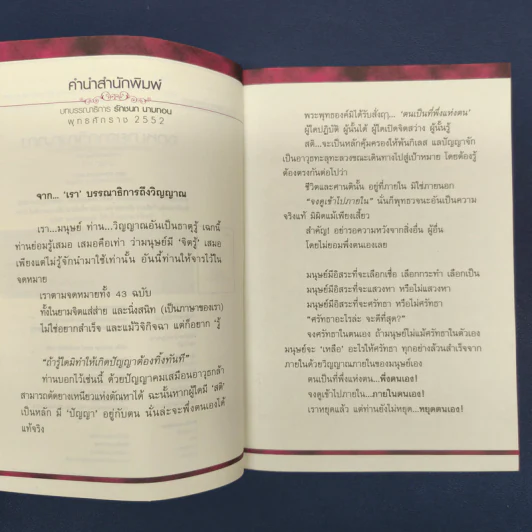 คำนำสำนักพิมพ์
บทบรรณาธิการ รักชนก นามทอน
พุทธศักราช 2552
จาก... 'เรา' บรรณาธิการถึงวิญญาณ
เรา...มนุษย์ ท่าน...วิญญาณอันเป็นธาตุรู้ เฉกนี้
ท่านย่อมรู้เสมอ เสมอคือเท่า ว่ามนุษย์มี 'จิตรู้' เสมอ
เพียงแต่ไม่รู้จักนำมาใช้เท่านั้น อันนี้ท่านให้จารไว้ใน
จดหมาย
เราตามจดหมายทั้ง 43 ฉบับ
ทั้งในยามจิตแส่ส่าย และนิ่งสนิท (เป็นภาษาของเรา)
ไม่ใช่อยากสำเร็จ และแม้วิจิกิจฉา แต่ก็อยาก 'รู้'
"ถ้ารู้ใดมิทำให้เกิดปัญญาต้องทิ้งทันที"
ท่านบอกไว้เช่นนี้ ด้วยปัญญาคมเสมือนอาวุธกล้า
สามารถตัดยางเหนียวแห่งตัณหาได้ ฉะนั้นหากผู้ใดมี 'สติ'
เป็นหลัก มี 'ปัญญา' อยู่กับตน นั่นล่ะจะพึ่งตนเองได้
แท้จริง
พระพุทธองค์มิได้รับสั่งฤๅ... 'ตนเป็นที่พึ่งแห่งตน'
ผู้ใดปฏิบัติ ผู้นั้นได้ ผู้ใดเปิดจิตสว่าง ผู้นั้นรู้
สติ...จะเป็นหลักคุ้มครองให้พ้นกิเลส และปัญญาจัก
เป็นอาวุธทะลุทะลวงขณะเดินทางไปสู่เป้าหมาย โดยต้องรู้
ต้องตรงกันต่อไปว่า
ชีวิตและศานตินั้น อยู่ที่ภายใน มิใช่ภายนอก
"จงดูเข้าไปภายใน" นั่นก็พุทธวจนะอันเป็นความ
จริงแท้ มิผิดแม้เพียงเสี้ยว
สำคัญ! อย่ารอความหวังจากสิ่งอื่น ผู้อื่น
โดยไม่ยอมพึ่งตนเองเลย
มนุษย์มีอิสระที่จะเลือกเชื่อ เลือกกระทำ เลือกเป็น
มนุษย์มีอิสระที่จะแสวงหา หรือไม่แสวงหา
มนุษย์มีอิสระที่จะศรัทธา หรือไม่ศรัทธา
"ศรัทธาอะไรล่ะ จะดีที่สุด?"
จงศรัทธาในตนเอง ถ้ามนุษย์ไม่แม้ศรัทธาในตัวเอง
มนุษย์จะ 'เหลือ' อะไรให้ศรัทธา ทุกอย่างล้วนสำเร็จจาก
ภายในด้วยวิญญาณภายในของมนุษย์เอง
ตนเป็นที่พึ่งแห่งตน...พึ่งตนเอง!
จงดูเข้าไปภายใน...ภายในตนเอง!
เราหยุดแล้ว แต่ท่านยังไม่หยุด...หยุดตนเอง!